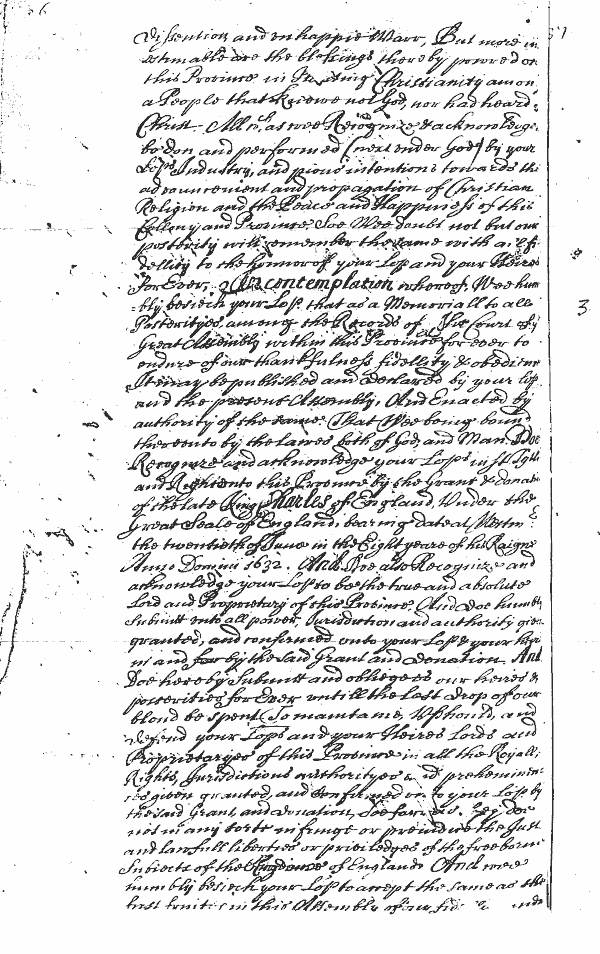 6
57
Dissention and unhappie Warr, But more in
estimable are the blessings thereby powred on
this Province in planting Christianity among
a People that knewe not God, nor had heard
Christ. All wch, as wee Recognize & acknowledge
to be don and performed (next under God) by your
Lops Industry, and pious intentions towards the
advauncement and propagation of Christian
Religion and the Peace and Happiness of this
Collony and Province Soe Wee doubt not but our
posterity will remember the same with all fi
dellity to the honnor of your Lop and your Heires
for Ever. In contemplation whereof, Wee hum
bly beseech your Lopp that as a Memoriall to all
Posterityes, among the Records of the Court of
Great Assembly within this Province for ever to
endure of our thankfulness fidellity & obedience
It may be published and declared by your Lop
and the present Assembly, And Enacted by
authority of the same. That Wee being bound
thereunto by the lawes both of God, and Man, Doe
Recognize and acknowledge your Lopps
and Right unto this Province by the Grant & Donation
of the late King Charles of England, Under the
Great Seale of England, bearing date at Westm
the twentieth of June in the Eight yeare of his Raigne
Anno Domini 1632. And Doe also Recognize and
acknowledge your Lop to be the true and absolute
Lord and Proprietary of this Province, And doe humbly
Submitt unto all power, Jurisdiction and authority given
granted, and confirmed unto your Lop & your heires
in and for by the said Grant and donation, And
Doe hereby Submitt and obliege us our heires &
posterities for Ever untill the last drop of our
bloud be spent To maintaine, Uphould, and
defend your Lops and your Heires Lords and
Proprietaryes of this Province in all the Royall
Rights, Jurisdictions authorityes and preheminen
ces given granted, and confirmed unto your Lop by
the said Grant, and donation, Soe farr as they doe
not in any sorte infringe or prejudice the Just
and lawfull liberties or priviledges of the free borne
Subjects of the Kingdome of England: And wee
humbly beseech your Lop to accept the same as the
first fruites in this Assembly of our
3